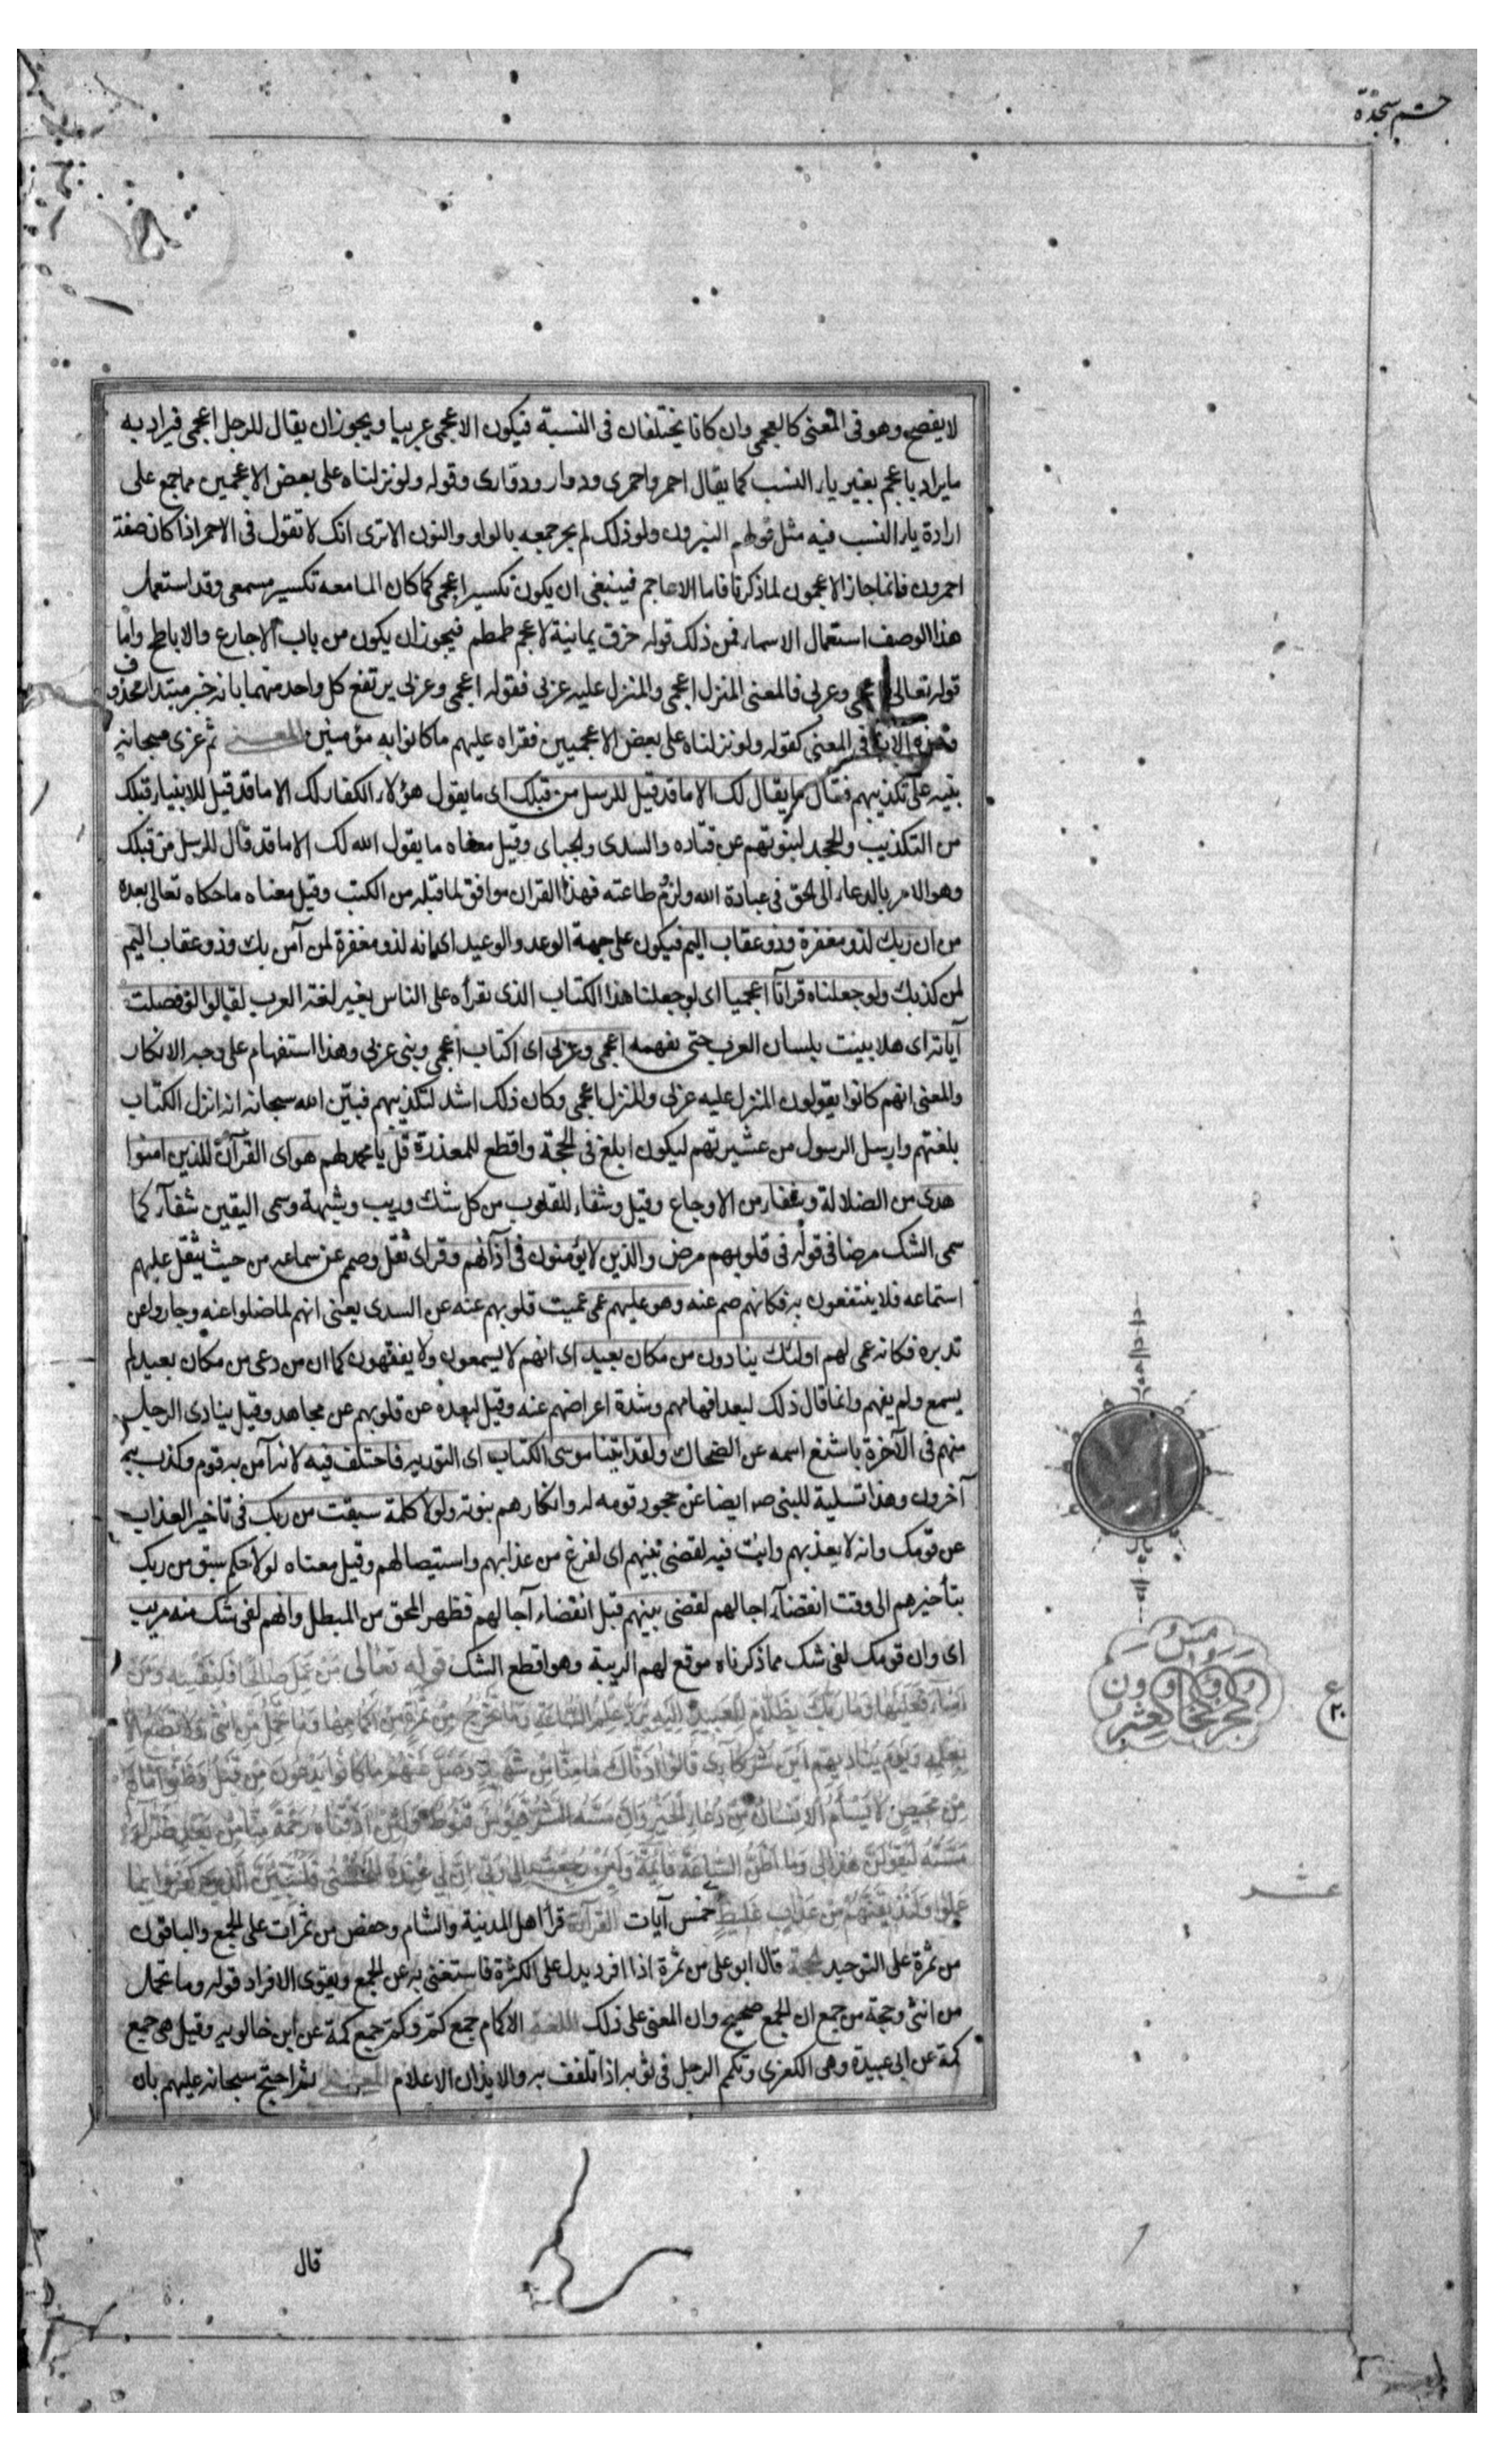 حٓم سجدة
لا يفصح وهو فى المعنى كالعجمى وان كانا يختلفان فى النسبة فيكون الاعجمى عربيا ويجوز ان يقال للرجل اعجمى فيراد به
ما يراد باعجم بغير ياء النسب كما يقال احمر واحمرى ودوار ودوّارى وقوله ولو نزلناه على بعض الاعجمين مما جمع على
ارادة ياء النسب فيه مثل قولهم النيرون ولولا ذلك لم يجز جمعه بالواو والنون الا ترى انك لا تقول فى الاحمر اذا كان صفة
احمرون فانما جاز الاعجمون لما ذكرنا فاما الاعاجم فينبغى ان يكون تكسير اعجمى كما كان المسامعه تكسير مسمعى وقد استعمل
هذا الوصف استعمال الاسماء فمن ذلك قوله حزق يمانية لاعجم طمطم فيجوز ان يكون من باب الاجارع والاباطح واما
قوله تعالى اعجمى وعربى فالمعنى المنزل اعجمى والمنزل عليه عربى فقوله اعجمى وعربى يرتفع كل واحد منهما بانه خبر مبتدا محذوف
وهذه الاية فى المعنى كقوله ولو نزلناه على بعض الاعجميين فقراه عليهم ما كانوا به مؤمنين المعنى ثم عزى سبحانه
نبيه على تكذيبهم فقال ما يقال لك الا ما قد قيل للرسل من قبلك اى ما يقول هؤلاء الكفار لك الا ما قد قيل للانبياء قبلك
من التكذيب والجحد لنبوتهم عن قتاده والسدى والجبائى وقيل معناه ما يقول الله لك الا ما قد قال للرسل من قبلك
وهو الامر بالدعاء الى الحق فى عبادة الله ولزوم طاعته فهذا القران موافق لما قبله من الكتب وقيل معناه ما حكاه تعالى بعده
من ان ربك لذو مغفرة وذو عقاب اليم فيكون على جهة الوعد والوعيد اى انه لذو مغفرة لمن آمن بك وذو عقاب اليم
لمن كذبك ولو جعلناه قرآنا اعجميا اى لو جعلنا هذا الكتاب الذى نقرأه على الناس بغير لغة العرب لقالوا لولا فصلت
آياته اى هلا بينت بلسان العرب حتى نفهمه اعجمى وعربى اى اكتاب اعجمى ونبى عربى وهذا استفهام على وجه الانكار
والمعنى انهم كانوا يقولون المنزل عليه عربى والمنزل اعجمى وكان ذلك اشد لتكذيبهم فبيّن الله سبحانه انه انزل الكتاب
بلغتهم وارسل الرسول من عشيرتهم ليكون ابلغ فى الحجة واقطع للمعذرة قل يا محمد لهم هو اى القرآن للذين امنوا
هدى من الضلالة وشفاء من الاوجاع وقيل وشفاء للقلوب من كل شك وريب وشبهة وسمى اليقين شفاء كما
سمى الشك مرضا فى قوله فى قلوبهم مرض والذين لا يؤمنون فى اذانهم وقر اى ثقل وصمم عن سماعه من حيث يثقل عليهم
استماعه فلا ينتفعون به فكانهم صم عنه وهو عليهم عمى عميت قلوبهم عنه عن السدى يعنى انهم لما ضلوا عنه وجاروا عن
تدبره فكانه عمى لهم اولئك ينادون من مكان بعيد اى انهم لا يسمعون ولا يفقهون كما ان من دعى من مكان بعيد لم
يسمع ولم يفهم وانما قال ذلك لبعد افهامهم وشدة اعراضهم عنه وقيل لبعده عن قلوبهم عن مجاهد وقيل ينادى الرجل
منهم فى الآخرة باشنع اسمه عن الضحاك ولقد اتينا موسى الكتاب اى التورية فاختلف فيه لانه آمن به قوم وكذب به
آخرون وهذا تسلية للنبى صه ايضا عن جحود قومه له وانكارهم نبوته ولولا كلمة سبقت من ربك فى تاخير العذاب
عن قومك وانه لا يعذبهم وانت فيهم لقضى بينهم اى لفرغ من عذابهم واستيصالهم وقيل معناه لولا حكم سبق من ربك
بتأخيرهم الى وقت انقضاء اجالهم لقضى بينهم قبل انقضاء آجالهم فظهر المحق من المبطل وانهم لفى شك منه مريب
اى وان قومك لفى شك مما ذكرناه موقع لهم الريبة وهو اقطع الشك قوله تعالى مَنْ عَمِلَ صَالِحًا فَلِنَفْسِهِ وَمَنْ
اَسَاءَ فَعَلَيْهَا وَمَا رَبُّكَ بِظَلَّامٍ لِلْعَبِيدِ اِلَيْهِ يُرَدُّ عِلْمُ السَّاعَةِ وَمَا تَخْرُجُ مِنْ ثَمَرَةٍ مِنْ اَكْمَامِهَا وَمَا تَحْمِلُ مِنْ اُنْثَى وَلَا تَضَعُ اِلَّا
بِعِلْمِهِ وَيَوْمَ يُنَادِيهِمْ اَيْنَ شُرَكَائِى قَالُوا اٰذَنَّاكَ مَا مِنَّا مِنْ شَهِيدٍ وَضَلَّ عَنْهُمْ مَا كَانُوا يَدْعُونَ مِنْ قَبْلُ وَظَنُّوا مَا لَهُمْ
مِنْ مَحِيصٍ لَا يَسْأَمُ الْاِنْسَانُ مِنْ دُعَاءِ الْخَيْرِ وَاِنْ مَسَّهُ الشَّرُّ فَيَؤُسٌ قَنُوطٌ وَلَئِنْ اَذَقْنَاهُ رَحْمَةً مِنَّا مِنْ بَعْدِ ضَرَّاءَ
مَسَّتْهُ لَيَقُولَنَّ هٰذَا لِى وَمَا اَظُنُّ السَّاعَةَ قَائِمَةً وَلَئِنْ رُجِعْتُ اِلٰى رَبِّى اِنَّ لِى عِنْدَهُ لَلْحُسْنٰى فَلَنُنَبِّئَنَّ الَّذِينَ كَفَرُوا بِمَا
عَمِلُوا وَلَنُذِيقَنَّهُمْ مِنْ عَذَابٍ غَلِيظٍ خمس آيات القرآءة قرأ اهل المدينة والشام وحفص من ثمرات على الجمع والباقون
من ثمرة على التوحيد الحجة قال ابو على من ثمرة اذا افرد يدل على الكثرة فاستغنى به عن الجمع ويقوى الافراد قوله وما تحمل
من انثى وحجة من جمع ان الجمع صحيح وان المعنى على ذلك اللغة الاكمام جمع كمّ وكمّ جمع كمة عن ابن خالويه وقيل هى جمع
كمة عن ابى عبيدة وهى الكفرى وتكمم الرجل فى ثوبه اذا تلفف به والايذان الاعلام المعنى ثم احتج سبحانه عليهم بان
الجزء الحادى والعشرون
ع
٢٠
عشر
قال